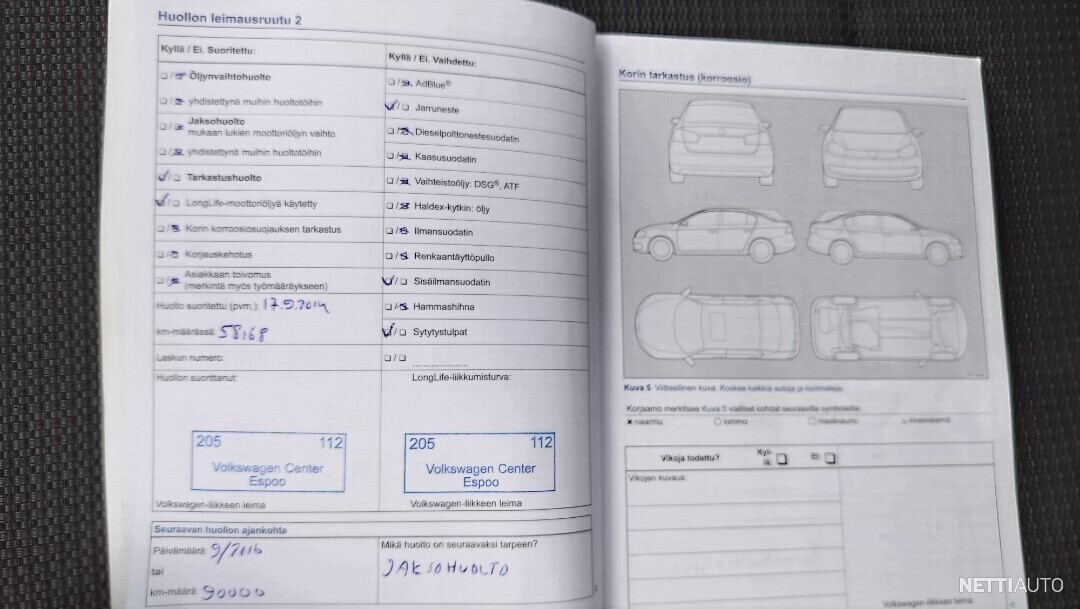 Huollon leimausruutu 2
Kyllä / Ei. Suoritettu:
Öljynvaihtohuolto
yhdistettynä muihin huoltotöihin
Jaksohuolto
mukaan lukien moottoriöljyn vaihto
yhdistettynä muihin huoltotöihin
Tarkastushuolto
LongLife-moottoriöljyä käytetty
Korin korroosiosuojauksen tarkastus
Korjauskehotus
Asiakkaan toivomus
(merkintä myös työmääräykseen)
Huolto suoritettu (pvm.): 17.9.2014
km-määrässä: 58168
Laskun numero:
Huollon suorittanut:
205 112
Volkswagen Center
Espoo
Volkswagen-liikkeen leima
Kyllä / Ei. Vaihdettu:
AdBlue®
Jarruneste
Dieselpolttonestesuodatin
Kaasusuodatin
Vaihteistoöljy: DSG®, ATF
Haldex-kytkin: öljy
Ilmansuodatin
Renkaantäyttöpullo
Sisäilmansuodatin
Hammashihna
Sytytystulpat
LongLife-liikkumisturva:
205 112
Volkswagen Center
Espoo
Volkswagen-liikkeen leima
Seuraavan huollon ajankohta
Päivämäärä: 9/2016
tai
km-määrä: 90000
Mikä huolto on seuraavaksi tarpeen?
JAKSOHUOLTO
Korin tarkastus (korroosio)
Kuva 5 Viitteellinen kuva. Koskee kaikkia autoja ja korimalleja.
Korjaamo merkitsee Kuva 5 vialliset kohdat seuraavilla symboleilla:
naarmu
lommo
Vikoja todettu?
Kyl-
lä:
Ei:
Vikojen kuvaus:
Volkswagen-liikkeen leima
NETTIAUTO